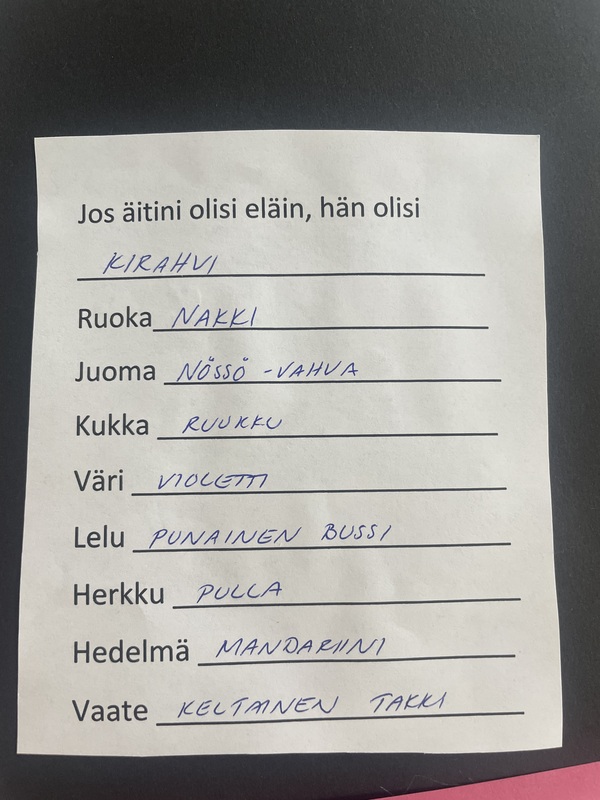 Jos äitini olisi eläin, hän olisi
KIRAHVI
Ruoka NAKKI
Juoma NÖSSÖ -VAHVA
Kukka RUUKKU
Väri VIOLETTI
Lelu PUNAINEN BUSSI
Herkku PULLA
Hedelmä MANDARIINI
Vaate KELTAINEN TAKKI